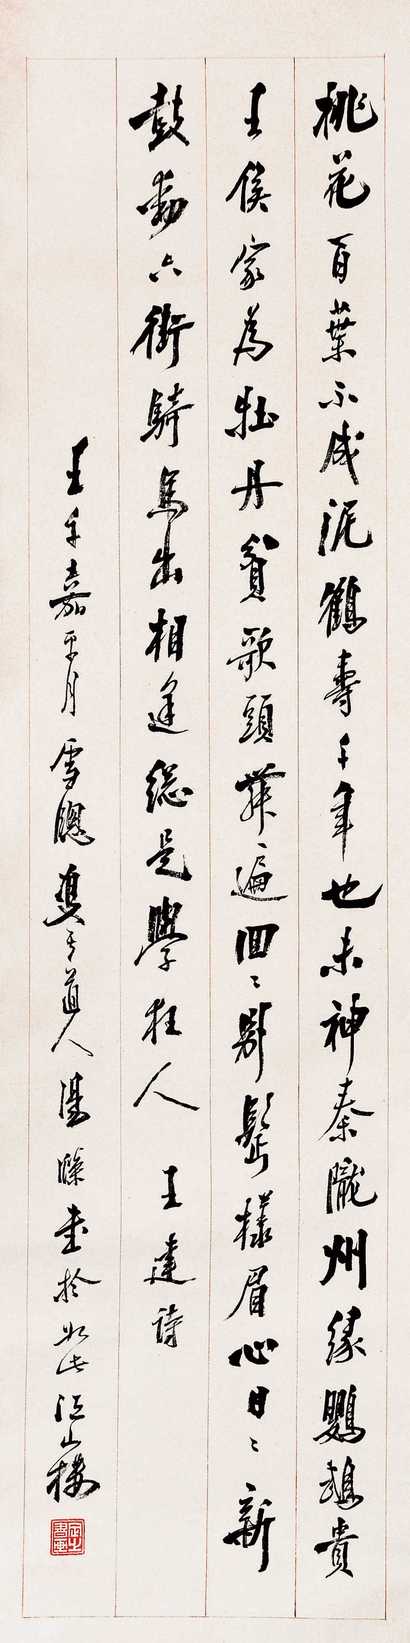 桃花百葉不成泥鶴壽千年也未神秦隴州缘鸚鵡貴
王侯家為牡丹貧歌頭舞遍回〻別鬓樣眉心日〻新
鼓動六街騎馬出相逢總是學狂人 王建詩
壬午嘉平月雪牕雙于道人湯滌書於此江山樓